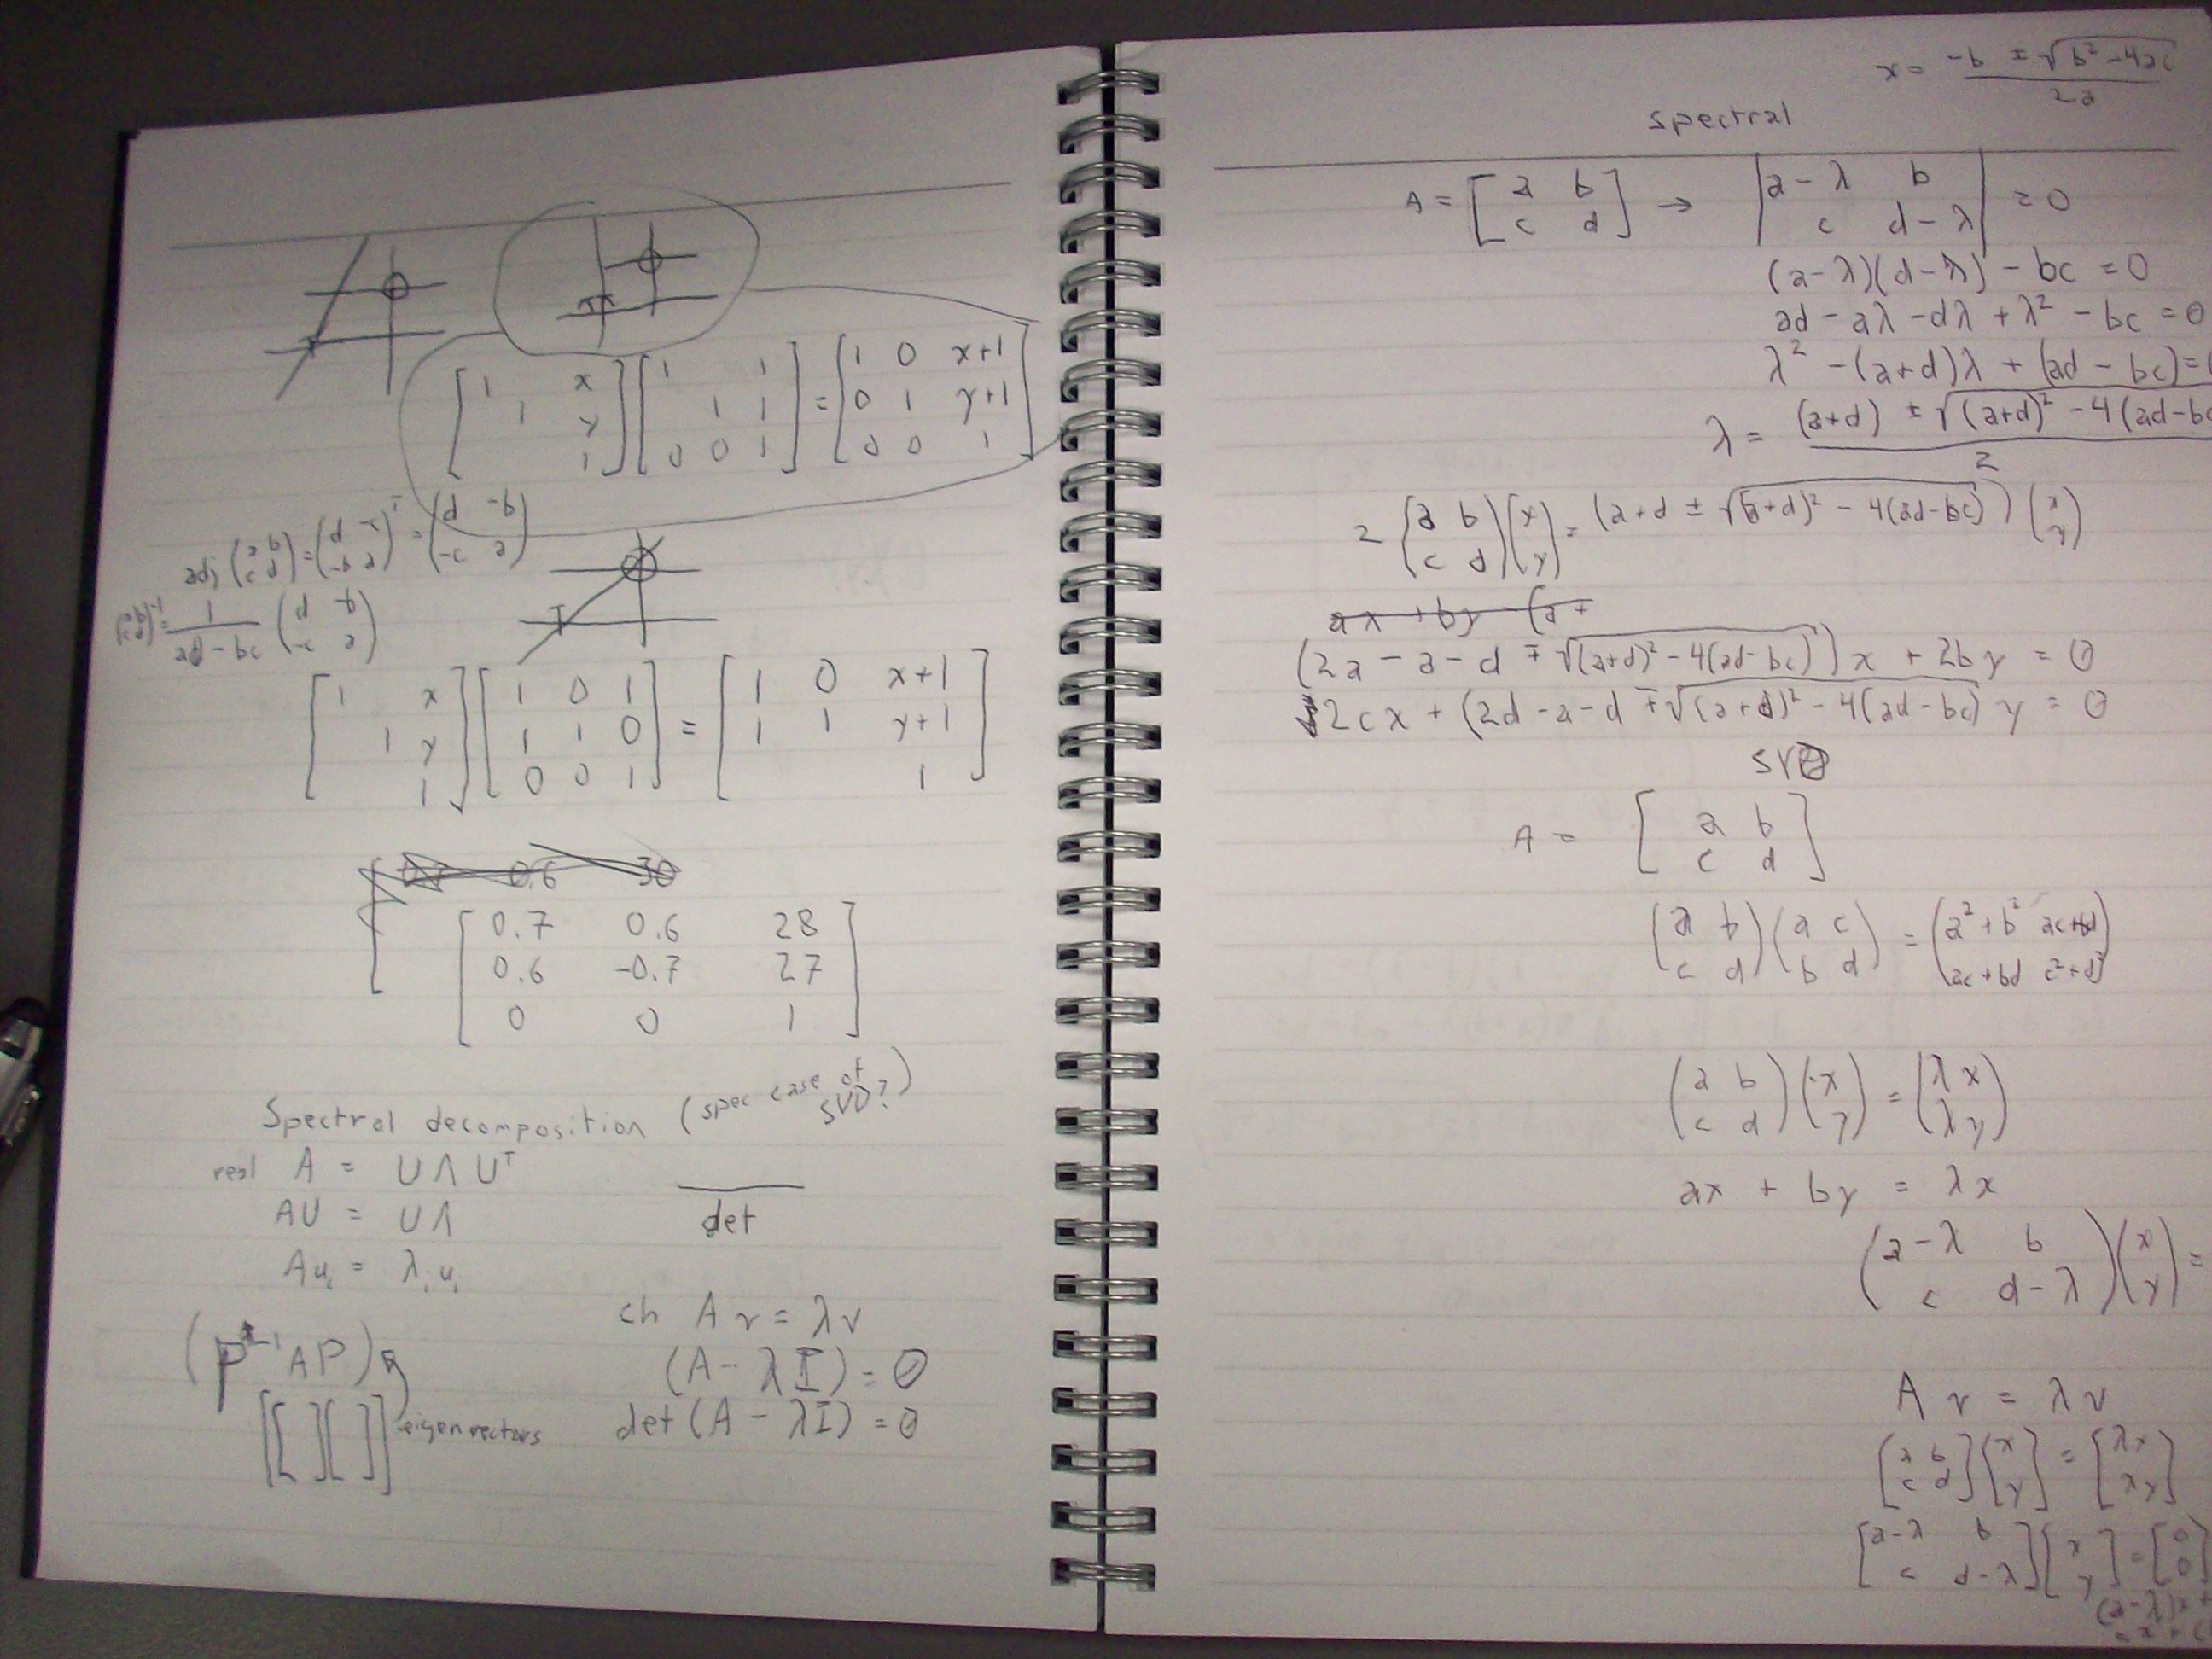 [1 x; 1 y; 1] [1 1; 1 1; 0 0 1] = [1 0 x+1; 0 1 y+1; 0 0 1]
adj (a b; c d) = (d -c; -b a)ᵀ = (d -b; -c a)
(a b; c d)⁻¹ = 1/(ad - bc) (d -b; -c a)
T
[1 x; 1 y; 1] [1 0 1; 1 1 0; 0 0 1] = [1 0 x+1; 1 1 y+1; 1]
0.6 30
[0.7 0.6 28
0.6 -0.7 27
0 0 1]
Spectral decomposition (spec case of SVD?)
real A = U Λ Uᵀ
AU = UΛ
Auᵢ = λᵢuᵢ
det
ch Av = λv
(A - λI) = 0
det(A - λI) = 0
(P⁻¹AP)
[[ ][ ]] eigenvectors
x = (-b ± √(b² - 4ac)) / 2a
spectral
A = [a b; c d] → |a-λ b; c d-λ| = 0
(a-λ)(d-λ) - bc = 0
ad - aλ - dλ + λ² - bc = 0
λ² - (a+d)λ + (ad - bc) =
λ = ((a+d) ± √((a+d)² - 4(ad-bc / 2
2 (a b; c d)(x; y) = (a+d ± √((a+d)² - 4(ad-bc))) (x; y)
ax + by - (a +
(2a - a - d ∓ √((a+d)² - 4(ad-bc))) x + 2by = 0
2cx + (2d - a - d ∓ √((a+d)² - 4(ad-bc)) y = 0
SVD
A = [a b; c d]
(a b; c d)(a c; b d) = (a²+b² ac+bd; ac+bd c²+d²)
(a b; c d)(x; y) = (λx; λy)
ax + by = λx
(a-λ b; c d-λ)(x; y) =
Av = λv
[a b; c d][x; y] = [λx; λy]
[a-λ b; c d-λ][x; y] = [0; 0]
(a-λ)x +